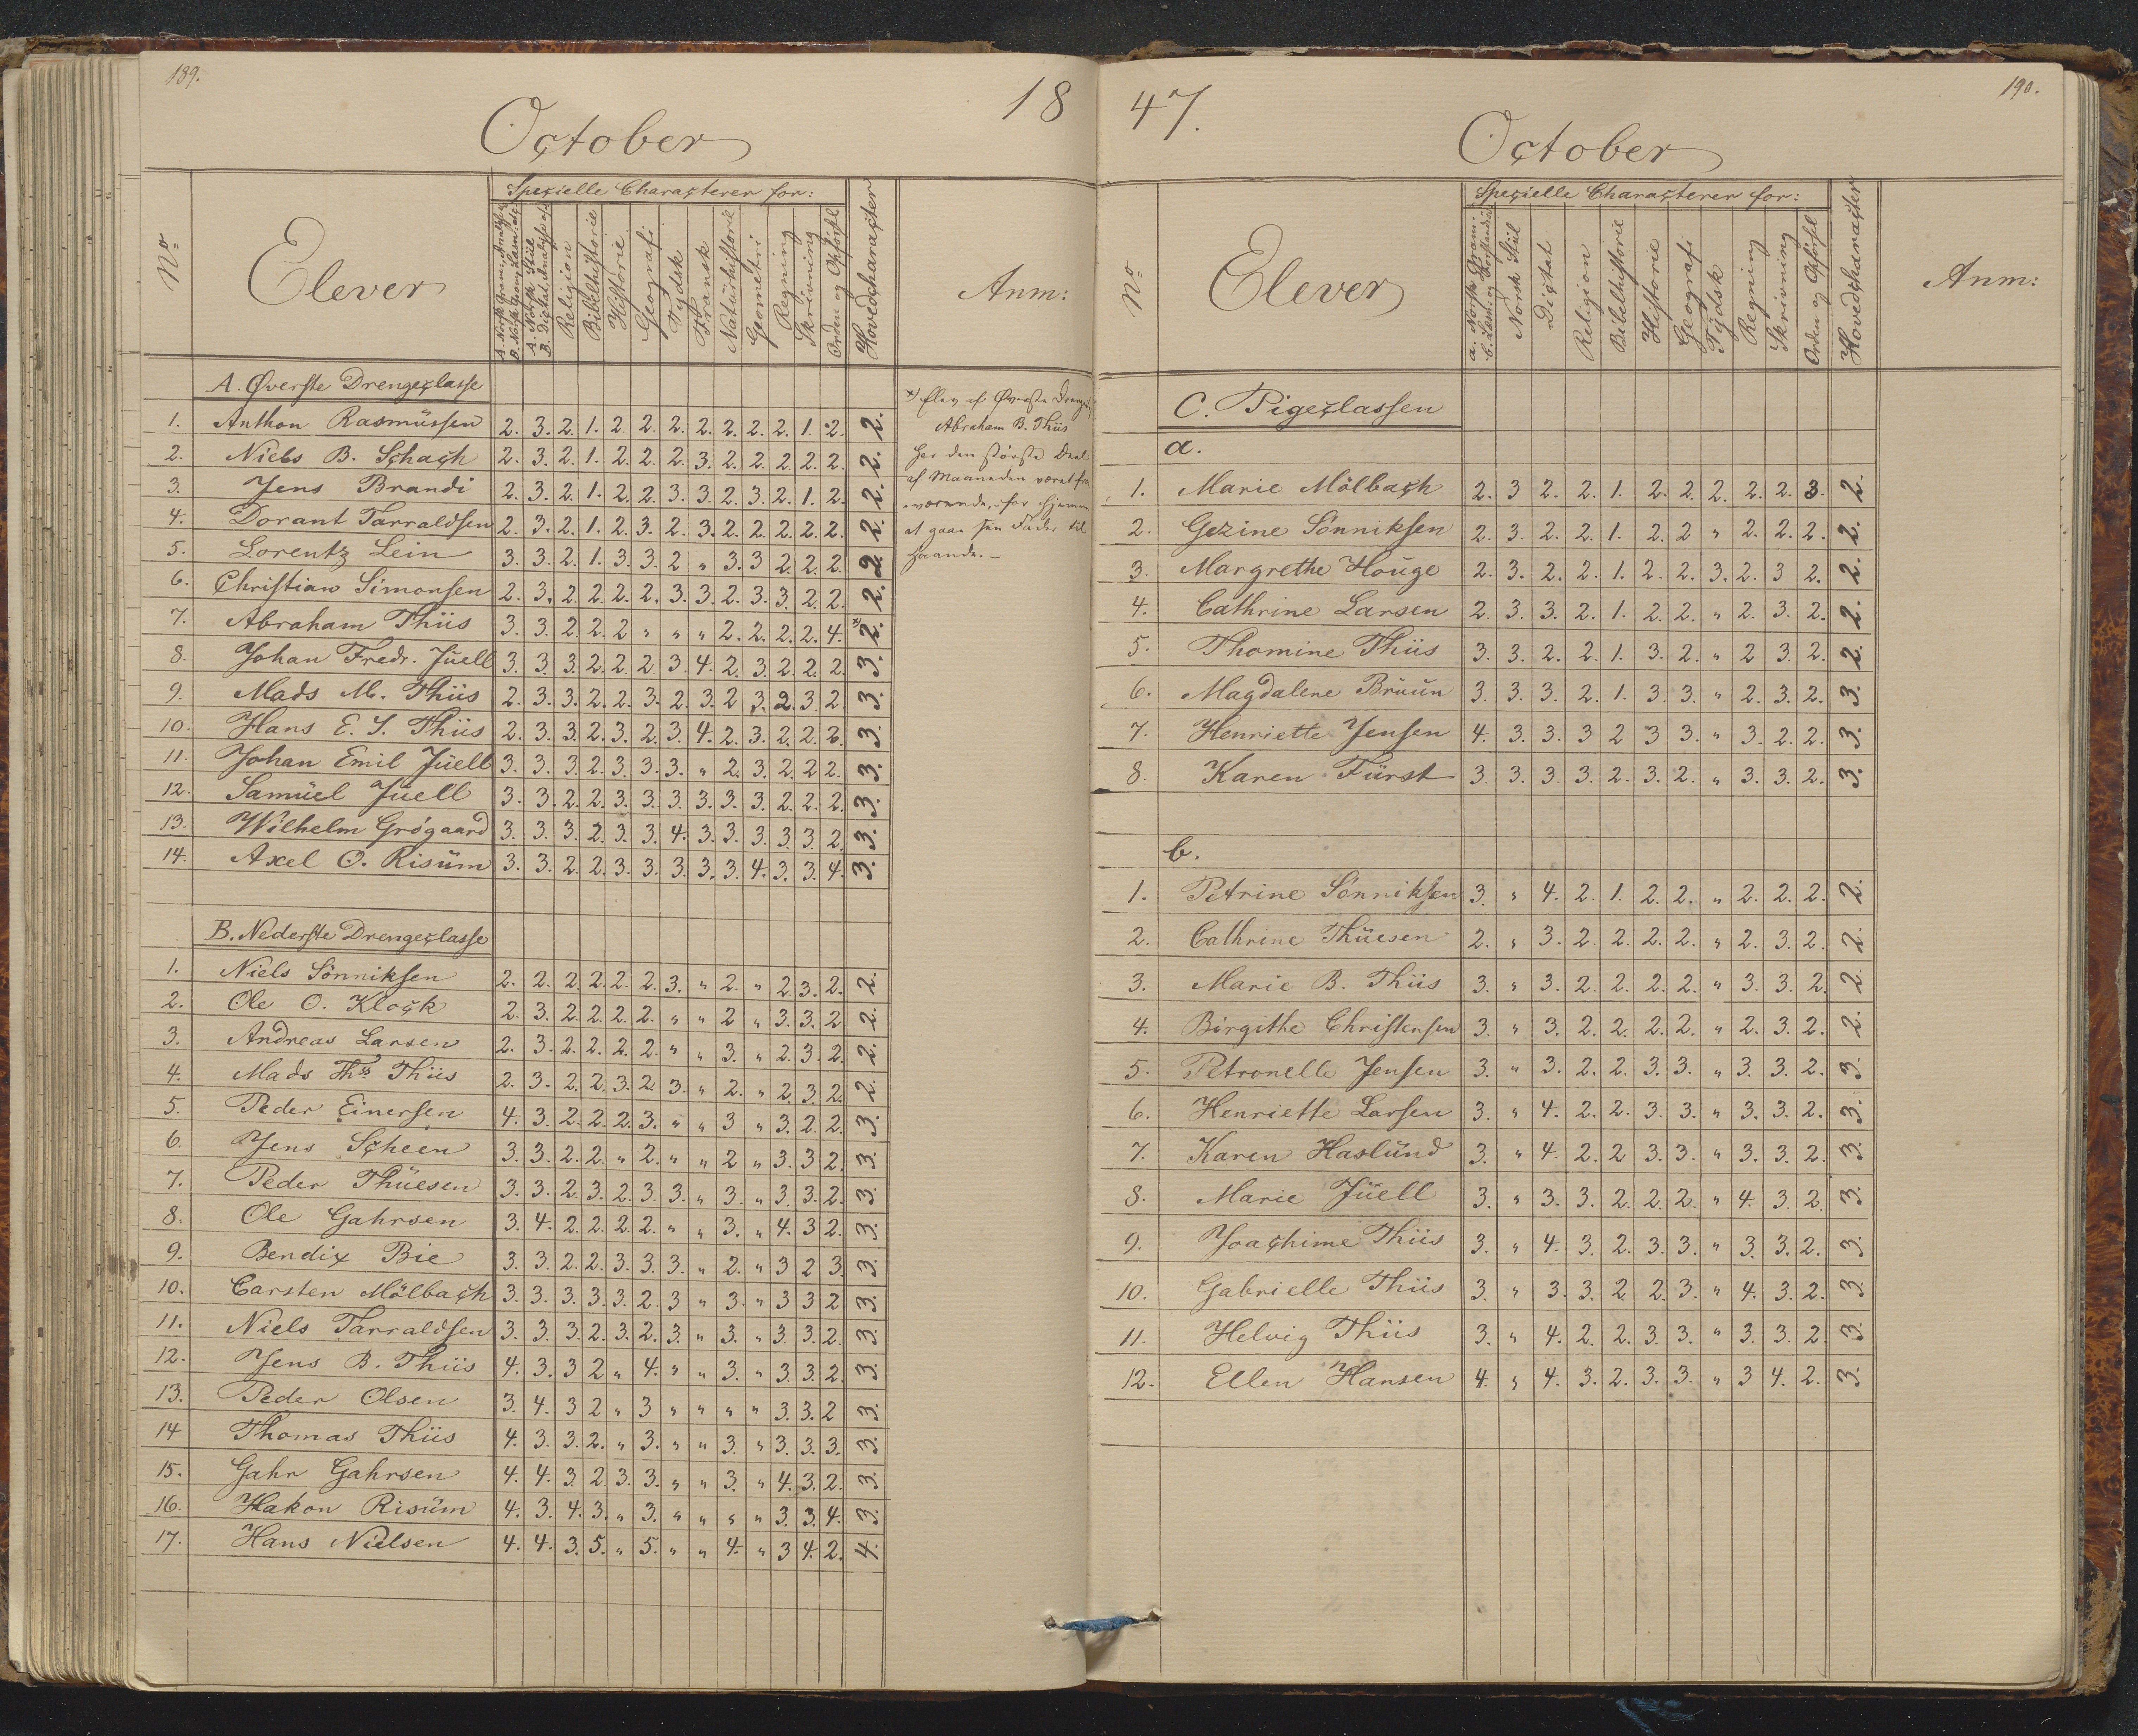 189.
18
October
No
Elever
Specielle Characterer for:
A. Norsk Gram: Analyse
B. Norsk Gram, Læsn. etc
A. Norsk Stiil
B. Dictat, Analyse etc
Religion
Bibelhistorie
Historie
Geografi
Tydsk
Fransk
Naturhistorie
Geometri
Regning
Skrivning
Orden og Opførsel
Hovedcharacter
Anm:
A. Øverste Drengeclasse
1. Anthon Rasmüssen 2. 3. 2. 1. 2. 2. 2. 2. 2. 2. 2. 1. 2. 2.
2. Niels B. Schach 2. 3. 2. 1. 2. 2. 2. 3. 2. 2. 2. 2. 2. 2.
3. Jens Brandi 2. 3. 2. 1. 2. 2. 3. 3. 2. 3. 2. 1. 2. 2.
4. Dorant Tarraldsen 2. 3. 2. 1. 2. 3. 2. 3. 2. 2. 2. 2. 2. 2.
5. Lorentz Lein 3. 3. 2. 1. 3. 3. 2 " 3. 3 2. 2. 2. 2.
6. Christian Simonsen 2. 3. 2. 2. 2. 2. 3. 3. 2. 3. 3. 2. 2. 2.
7. Abraham Thiis 3. 3. 2. 2. 2 " " " 2. 2. 2. 2. 4. *2.
8. Johan Fredr. Jüell 3. 3. 3. 2. 2. 2 3. 4. 2. 3. 2. 2. 2. 3.
9. Mads M. Thiis 2. 3. 3. 2. 2. 3. 2. 3. 2 3. 2. 3. 2. 3.
10. Hans E. S. Thiis 2. 3. 3. 2. 3. 2. 3. 4. 2. 3. 2. 2. 2. 3.
11. Johan Emil Jüell 3. 3. 3. 2. 3. 3. 3. " 2. 3. 2. 2. 2. 3.
12. Samüel Jüell 3. 3. 2. 2. 3. 3. 3. 3. 3. 3. 2. 2. 2. 3.
13. Wilhelm Grøgaard 3. 3. 3. 2. 3. 3. 4. 3. 3. 3. 3. 3. 2. 3.
14. Axel O. Risüm 3. 3. 2. 2. 3. 3. 3. 3. 3. 4. 3. 3. 4. 3.
*) Elev af Øverste Drenge
Abraham B. Thiis
har den største Deel
af Maaneden været fra
værende, for hjemme
at gaae sin Fader til
Haande. –
B. Nederste Drengeclasse
1. Niels Sönniksen 2. 2. 2. 2. 2. 2. 3. " 2. " 2. 3. 2. 2.
2. Ole O. Klock 2. 3. 2. 2. 2. 2. " " 2 " 3. 3. 2 2.
3. Andreas Larsen 2. 3. 2. 2. 2. 2. " " 3. " 2. 3. 2. 2.
4. Mads Ths Thiis 2. 3. 2. 2. 3. 2. 3. " 2. " 2. 3. 2. 2.
5. Peder Einersen 4. 3. 2. 2. 2. 3. " " 3 " 3. 2. 2. 3.
6. Jens Scheen 3. 3. 2. 2. " 2. " " 2 " 3. 3 2. 3.
7. Peder Thüesen 3. 3. 2. 3. 2. 3. 3. " 3. " 3. 3. 2. 3.
8. Ole Gahrsen 3. 4. 2. 2. 2. 2. " " 3. " 4. 3 2. 3.
9. Bendix Bie 3. 3. 2. 2. 3. 3. 3. " 2. " 3 2 3. 3.
10. Carsten Mölbach 3. 3. 3. 3. 3. 2. 3 " 3. " 3 3 2 3.
11. Niels Tarraldsen 3. 3. 3. 2. 3. 2. 3. " 3. " 3. 3. 2. 3.
12. Jens B. Thiis 4. 3. 3 2 " 4. " " 3. " 3. 3. 2. 3.
13. Peder Olsen 3. 4. 3 2 " 3 " " " " 3. 3. 2 3.
14 Thomas Thiis 4. 3. 3. 2. " 3. " " 3. " 3. 3. 3. 3.
15. Gahr Gahrsen 4. 4. 3 2. 3. 3. " " 3. " 4. 3. 2. 3.
16. Hakon Risüm 4. 3. 4. 3. " 3. " " " " 3. 3. 4. 3.
17. Hans Nielsen 4. 4. 3. 5. " 5. " " 4. " 3 4. 2. 4.
47.
190.
October
No
Elever
Specielle Characterer for:
a. Norsk Gram:
b. Læsn: og Forstand:
Norsk Stiil
Dictat
Religion
Bibelhistorie
Historie
Geografi
Tydsk
Regning
Skrivning
Orden og Opførsel
Hovedcharacter
Anm:
C. Pigeclassen
a.
1. Marie Mölbach 2. 3 2. 2. 1. 2. 2. 2. 2. 2. 3. 2.
2. Gezine Sönniksen 2. 3. 2. 2. 1. 2. 2 " 2. 2. 2. 2.
3. Margrethe Houge 2. 3. 2. 2. 1. 2. 2. 3. 2. 3 2. 2.
4. Cathrine Larsen 2. 3. 3. 2. 1. 2. 2. " 2. 3. 2. 2.
5. Thomine Thiis 3. 3. 2. 2. 1. 3. 2. " 2 3. 2. 2.
6. Magdalene Brüün 3. 3. 3. 2. 1. 3. 3. " 2. 3. 2. 3.
7. Henriette Jensen 4. 3. 3. 3 2 3 3. " 3. 2. 2. 3.
8. Karen Fürst 3. 3. 3. 3. 2. 3. 2. " 3. 3. 2. 3.
b.
1. Petrine Sönniksen 3. " 4. 2. 1. 2. 2. " 2. 2. 2. 2.
2. Cathrine Thüesen 2. " 3. 2. 2. 2. 2. " 2. 3. 2. 2.
3. Marie B. Thiis 3. " 3. 2. 2. 2. 2. " 3. 3. 2. 2.
4. Birgithe Christensen 3. " 3. 2. 2. 2. 2. " 2. 3. 2. 2.
5. Petronelle Jensen 3. " 3. 2. 2. 3. 3. " 3. 3. 2. 3.
6. Henriette Larsen 3. " 4. 2. 2. 3. 3. " 3. 3. 2. 3.
7. Karen Haslünd 3. " 4. 2. 2 3. 3. " 3. 3. 2. 3.
8. Marie Jüell 3. " 3. 3. 2. 2. 2. " 4. 3. 2. 3.
9. Joachime Thiis 3. " 4. 3. 2. 3. 3. " 3. 3. 2. 3.
10. Gabrielle Thiis 3. " 3. 3. 2. 2. 3. " 4. 3. 2. 3.
11. Helvig Thiis 3. " 4. 2. 2. 3. 3. " 3. 3. 2. 3.
12. Ellen Hansen 4. " 4. 3. 2. 3. 3. " 3 4. 2. 3.